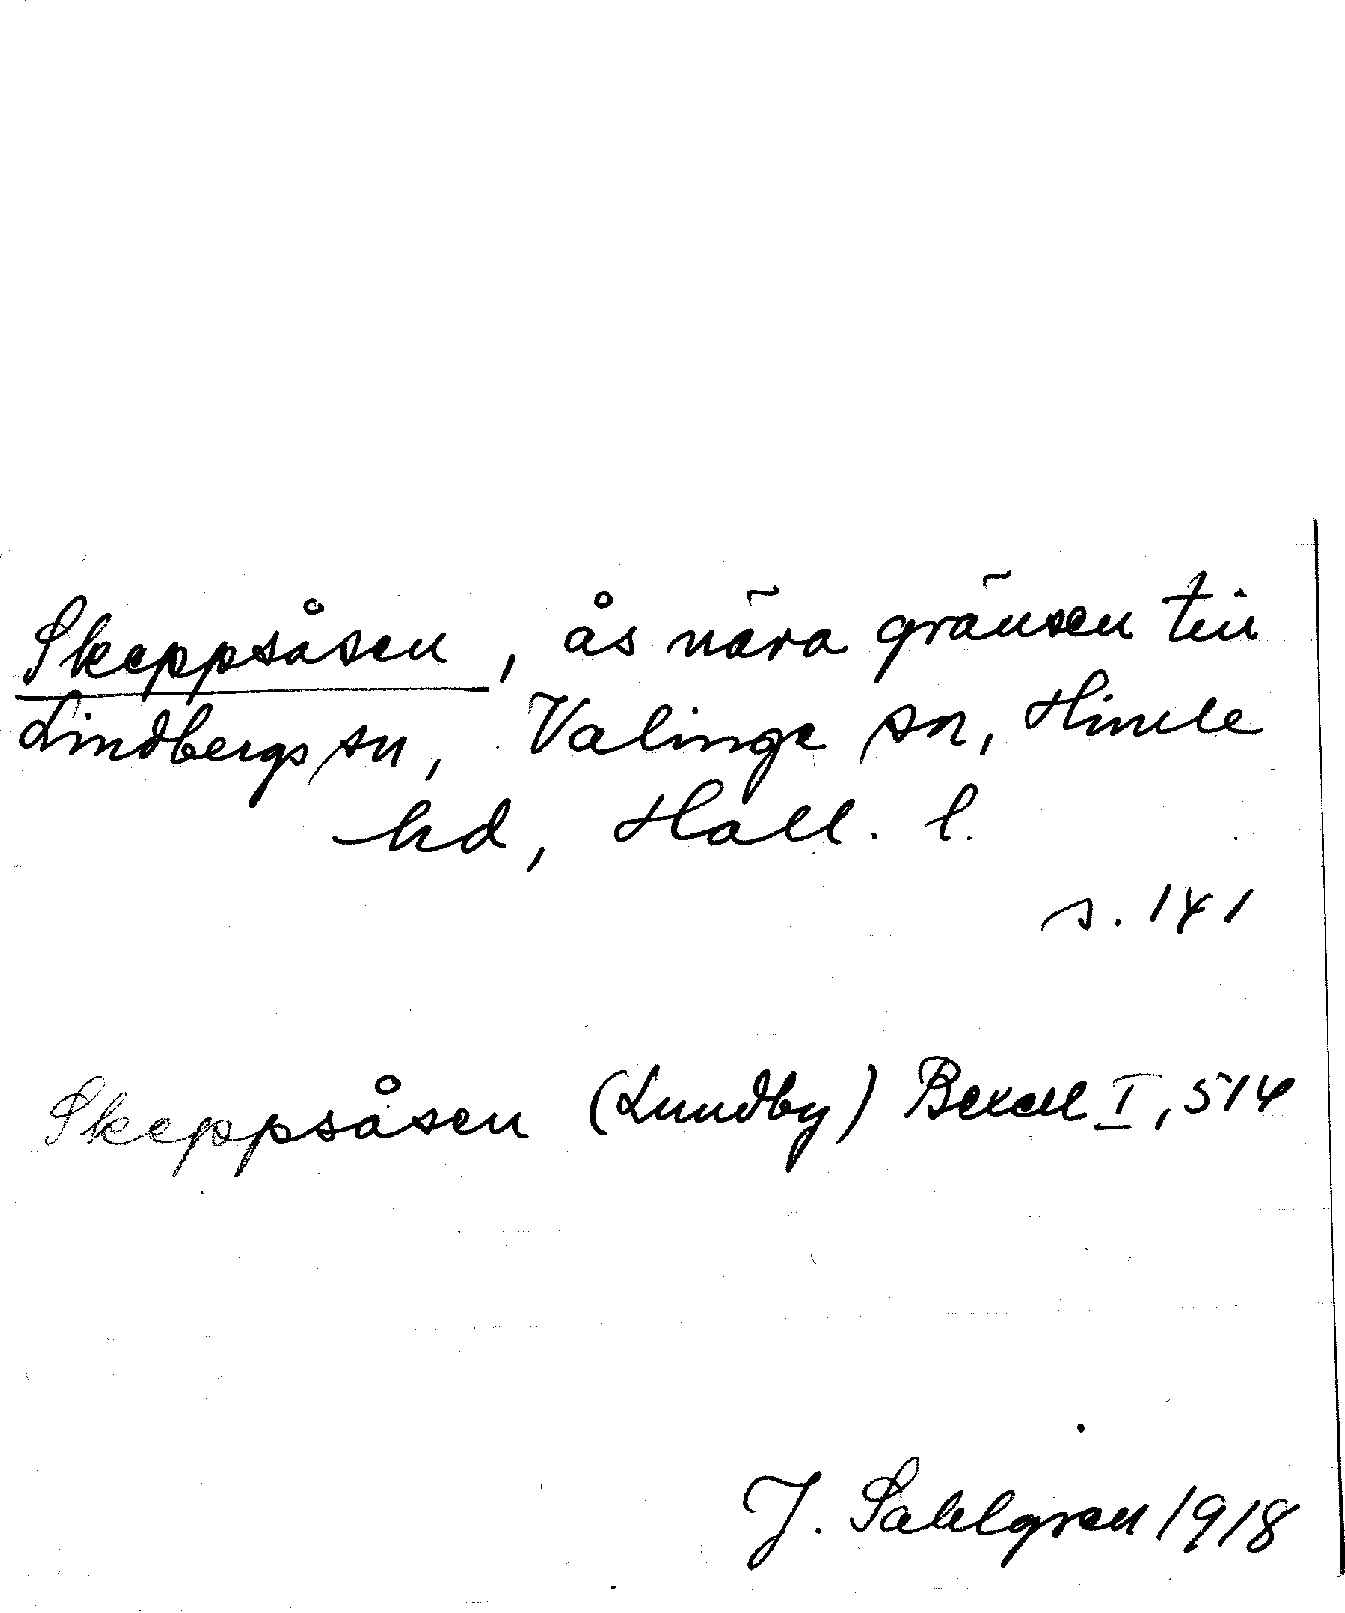 Skeppsåsen, ås nära gränsen till
Lindbergs sn, Valinge sn, Himle
hd, Hall. l.
s. 141
Skeppsåsen (Lundby) Bexell I, 514
J. Sahlgren 1918